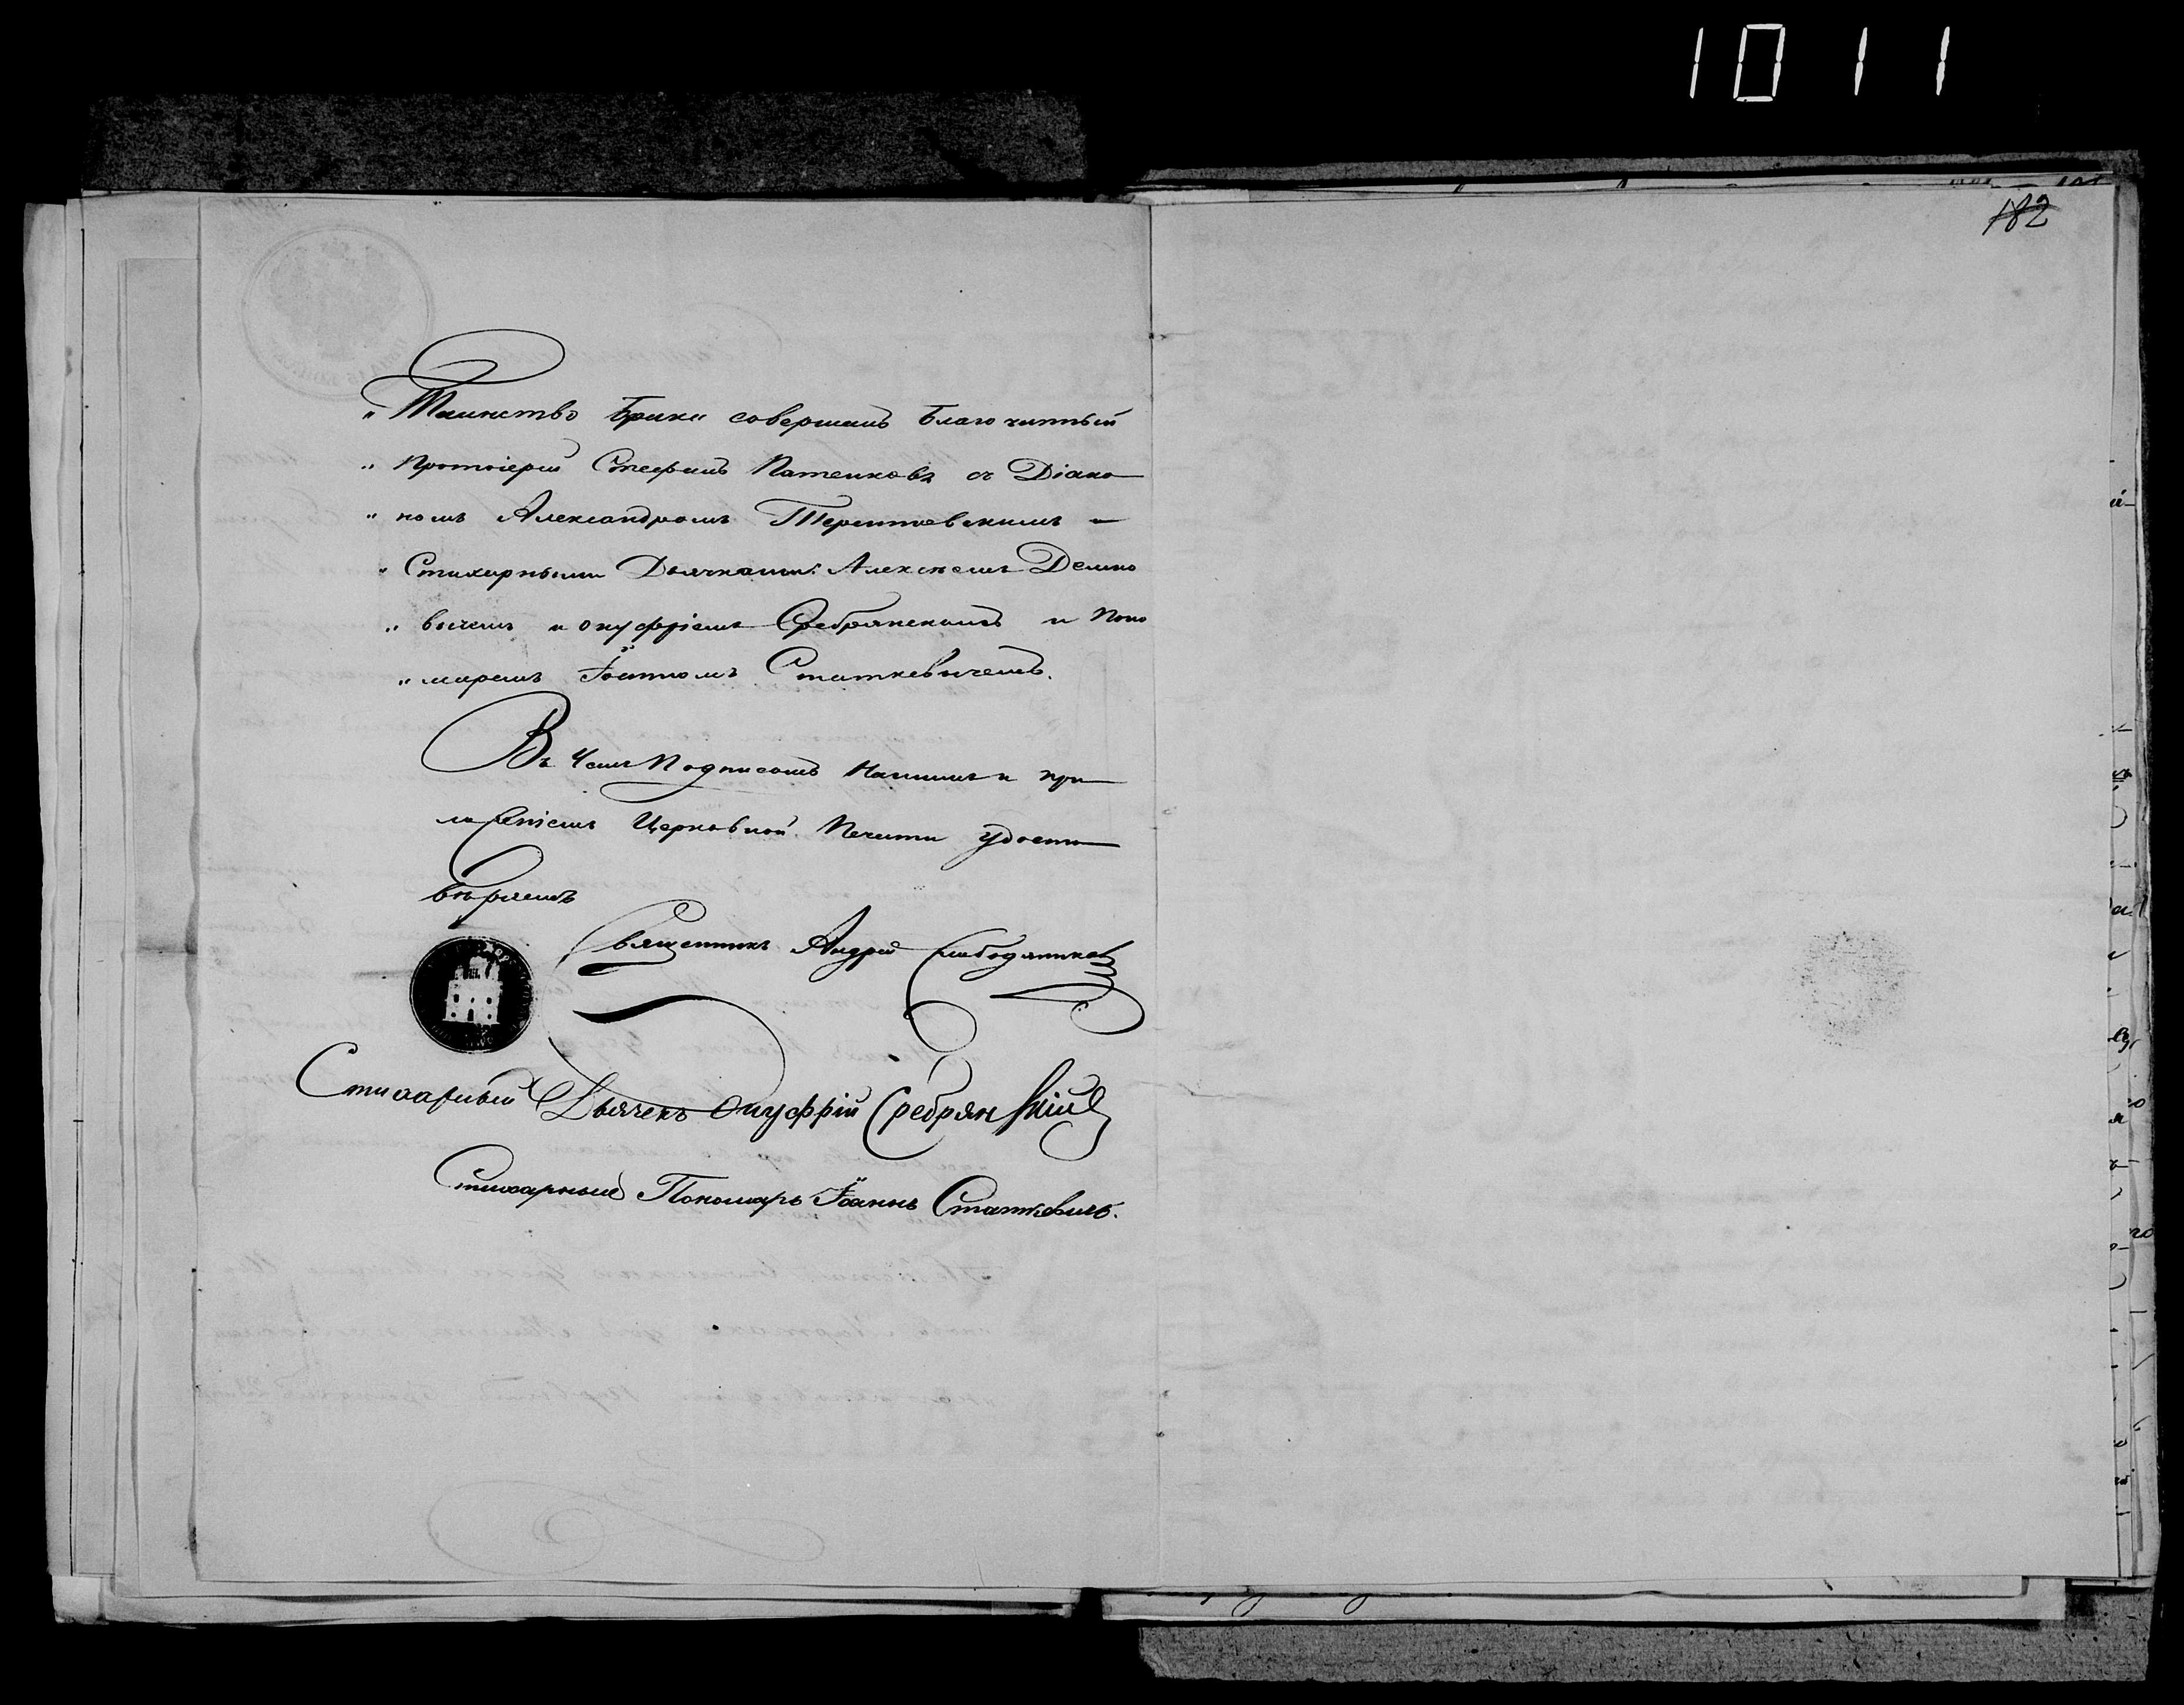 1011
182
„Таинство Брака совершалъ Благочинный
„Протоіерей Стефанъ Потенковъ съ Діако
„номъ Александромъ и
„Стихарными Дьячками: Алексѣемъ Демно
„вичемъ и Онуфріемъ Сребрянскимъ и Поно
„маремъ Іоанномъ Статкевичемъ.
Въ чемъ Подписомъ Нашимъ и при
ложеніемъ Церковной Печати удосто
вѣряемъ
Священникъ Андрей Слободяников
Стихарный Дьячекъ Онуфрій Сребрянскій
Стихарный Пономарь Іоаннъ Статкевичъ.